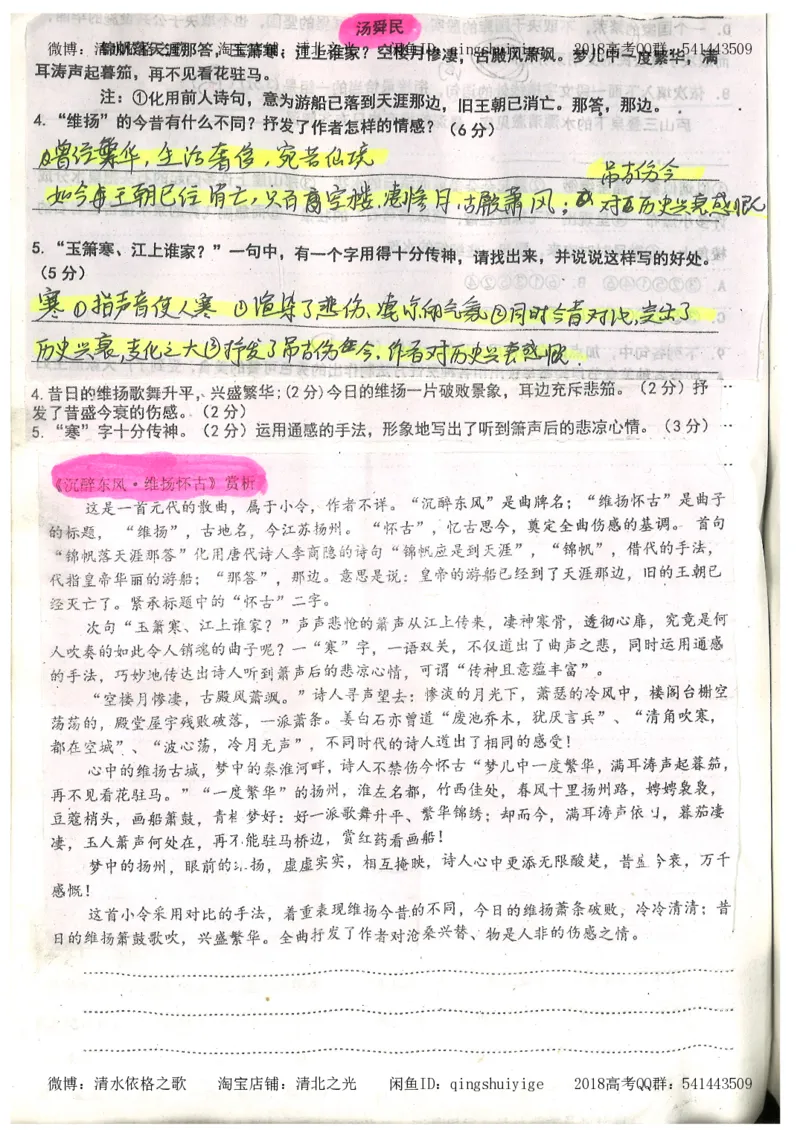 汤舜民
微博：清水依格之歌 淘宝店铺：清北之光 闲鱼ID：qingshuiyige 2018高考QQ群：541443509
锦帆落天涯那答，玉箫寒、江上谁家？空楼月惨凄，古殿风萧飒。梦儿中一度繁华，满
耳涛声起暮笳，再不见看花驻马。
注：①化用前人诗句，意为游船已落到天涯那边，旧王朝已消亡。那答，那边。
4.“维扬”的今昔有什么不同？抒发了作者怎样的情感？（6分）
曾经繁华，生活奢侈，宛若仙境
吊古伤今
如今每王朝已经消亡，只有空楼、凄惨月、古殿萧风；对历史兴衰感慨
5.“玉箫寒、江上谁家？”一句中，有一个字用得十分传神，请找出来，并说说这样写的好处。
（5分）
寒 ①指声音使人寒 ①渲染了悲伤、凄凉的气氛②同时今昔对比，突出了
历史兴衰，变化之大③抒发了吊古伤今，作者对历史兴衰感慨
4.昔日的维扬歌舞升平，兴盛繁华；(2分)今日的维扬一片破败景象，耳边充斥悲笳。（2分）抒
发了昔盛今衰的伤感。（2分）
5.“寒”字十分传神。（2分）运用通感的手法，形象地写出了听到箫声后的悲凉心情。（3分）
《沉醉东风·维扬怀古》赏析
这是一首元代的散曲，属于小令，作者不详。“沉醉东风”是曲牌名；“维扬怀古”是曲子
的标题，“维扬”，古地名，今江苏扬州。“怀古”，忆古思今，奠定全曲伤感的基调。首句
“锦帆落天涯那答”化用唐代诗人李商隐的诗句“锦帆应是到天涯”，“锦帆”，借代的手法，
代指皇帝华丽的游船；“那答”，那边。意思是说：皇帝的游船已经到了天涯那边，旧的王朝已
经灭亡了。紧承标题中的“怀古”二字。
次句“玉箫寒、江上谁家？”声声悲怆的箫声从江上传来，凄神寒骨，透彻心扉，究竟是何
人吹奏的如此令人销魂的曲子呢？一“寒”字，一语双关，不仅道出了曲声之悲，同时运用通感
的手法，巧妙地传达出诗人听到箫声后的悲凉心情，可谓“传神且意蕴丰富”。
“空楼月惨凄，古殿风萧飒。”诗人寻声望去：惨淡的月光下，萧瑟的冷风中，楼阁台榭空
荡荡的，殿堂屋宇残败破落，一派萧条。姜白石亦曾道“废池乔木，犹厌言兵”、“清角吹寒，
都在空城”、“波心荡，冷月无声”，不同时代的诗人道出了相同的感受！
心中的维扬古城，梦中的秦淮河畔，诗人不禁伤今怀古“梦儿中一度繁华，满耳涛声起暮笳，
再不见看花驻马。”“一度繁华”的扬州，淮左名都，竹西佳处，春风十里扬州路，娉娉袅袅，
豆蔻梢头，画船箫鼓，青楼梦好：好一派歌舞升平、繁华锦绣；却而今，满耳涛声依旧，暮笳凄
凄，玉人箫声何处在，再不能驻马桥边，赏红药看画船！
梦中的扬州，眼前的维扬，虚虚实实，相互掩映，诗人心中更添无限酸楚，昔盛今衰，万千
感慨！
这首小令采用对比的手法，着重表现维扬今昔的不同，今日的维扬萧条破败，冷冷清清；昔
日的维扬箫鼓歌吹，兴盛繁华。全曲抒发了作者对沧桑兴替、物是人非的伤感之情。
微博：清水依格之歌 淘宝店铺：清北之光 闲鱼ID：qingshuiyige 2018高考QQ群：541443509